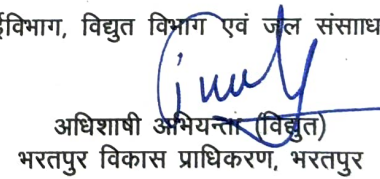 विभाग, विद्युत विभाग एवं जल संसाध
अधिशाषी अभियन्ता (विद्युत)
भरतपुर विकास प्राधिकरण, भरतपुर